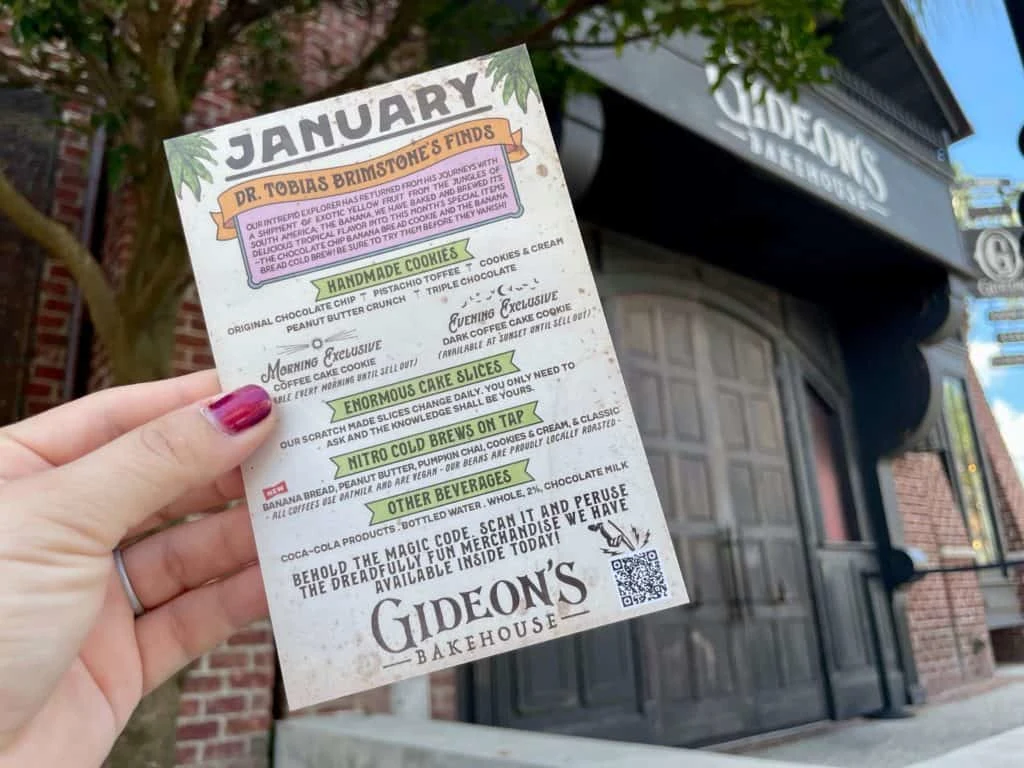 JANUARY
DR. TOBIAS BRIMSTONE'S FINDS
OUR INTREPID EXPLORER HAS RETURNED FROM HIS JOURNEYS WITH
A SHIPMENT OF EXOTIC YELLOW FRUIT FROM THE JUNGLES OF
SOUTH AMERICA; THE BANANA. WE HAVE BAKED AND BREWED ITS
DELICIOUS TROPICAL FLAVOR INTO THIS MONTH'S SPECIAL ITEMS
-THE CHOCOLATE CHIP BANANA BREAD COOKIE AND THE BANANA
BREAD COLD BREW! BE SURE TO TRY THEM BEFORE THEY VANISH!
HANDMADE COOKIES
ORIGINAL CHOCOLATE CHIP PISTACHIO TOFFEE COOKIES & CREAM
PEANUT BUTTER CRUNCH TRIPLE CHOCOLATE
MORNING EXCLUSIVE
COFFEE CAKE COOKIE
EVERY MORNING UNTIL SELL OUT)
EVENING EXCLUSIVE
DARK COFFEE CAKE COOKIE
(AVAILABLE AT SUNSET UNTIL SELL OUT)
ENORMOUS CAKE SLICES
OUR SCRATCH MADE SLICES CHANGE DAILY. YOU ONLY NEED TO
ASK AND THE KNOWLEDGE SHALL BE YOURS.
NITRO COLD BREWS ON TAP
NEW
BANANA BREAD, PEANUT BUTTER, PUMPKIN CHAI, COOKIES & CREAM, & CLASSIC
- ALL COFFEES USE OATMILK AND ARE VEGAN - OUR BEANS ARE PROUDLY LOCALLY ROASTED -
OTHER BEVERAGES
COCA-COLA PRODUCTS . BOTTLED WATER . WHOLE, 2%, CHOCOLATE MILK
BEHOLD THE MAGIC CODE. SCAN IT AND PERUSE
THE DREADFULLY FUN MERCHANDISE WE HAVE
AVAILABLE INSIDE TODAY!
GIDEON'S
BAKEHOUSE
GIDEON'S
BAKEHOUSE
G